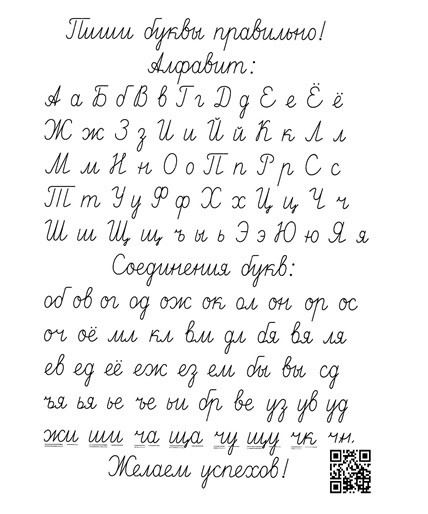 Пиши буквы правильно!
Алфавит:
А а Б б В в Г г Д д Е е Ё ё
Ж ж З з И и Й й К к Л л
М м Н н О о П п Р р С с
Т т У у Ф ф Х х Ц ц Ч ч
Ш ш Щ щ ъ ы ь Э э Ю ю Я я
Соединения букв:
об ов ог од ож ок ол он ор ос
оч оё мл кл вм дл бя вя ля
ев ед её еж ез ем бы вы сд
ъя ья ье ъе ьи бр ве уз ув уд
жи ши ча ща чу щу чк чн.
Желаем успехов!